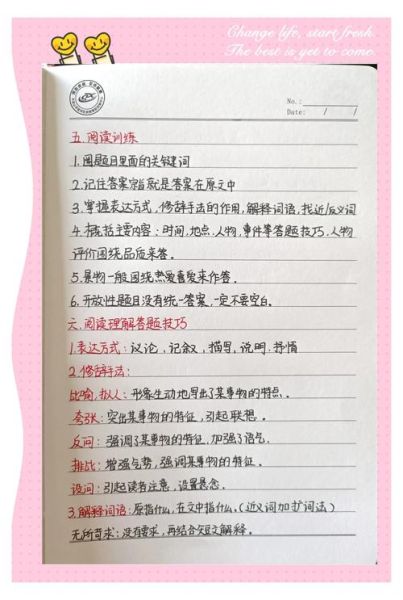 Change life, start fresh.
The best is yet to come.
No.:
Date: / /
五.阅读训练
1.圈题目里面的关键词
2.记住答案就是答案在原文中
3.掌握表达方式,修辞手法的作用,解释词语,找近/反义词
4.概括主要内容:时间,地点,人物,事件等答题技巧.人物
评价围绕品质来答。
5.景物一般围绕热爱喜爱来作答。
6.开放性题目没有统一答案,一定不要空白。
六.阅读理解答题技巧
1.表达方式:议论,记叙,描写,说明.抒情
2.修辞手法:
比喻,拟人:形象生动地写出了某事物的特点。
夸张:突出某事物的特征,引起联想。
反问:强调了某事物的特征,加强了语气.
排比:增强气势,强调某事物的特征。
设问:引起读者注意,设置悬念。
3.解释词语:原指什么,在文中指什么。(近义词加扩词法)
无所苛求:没有要求,再结合短文解释。